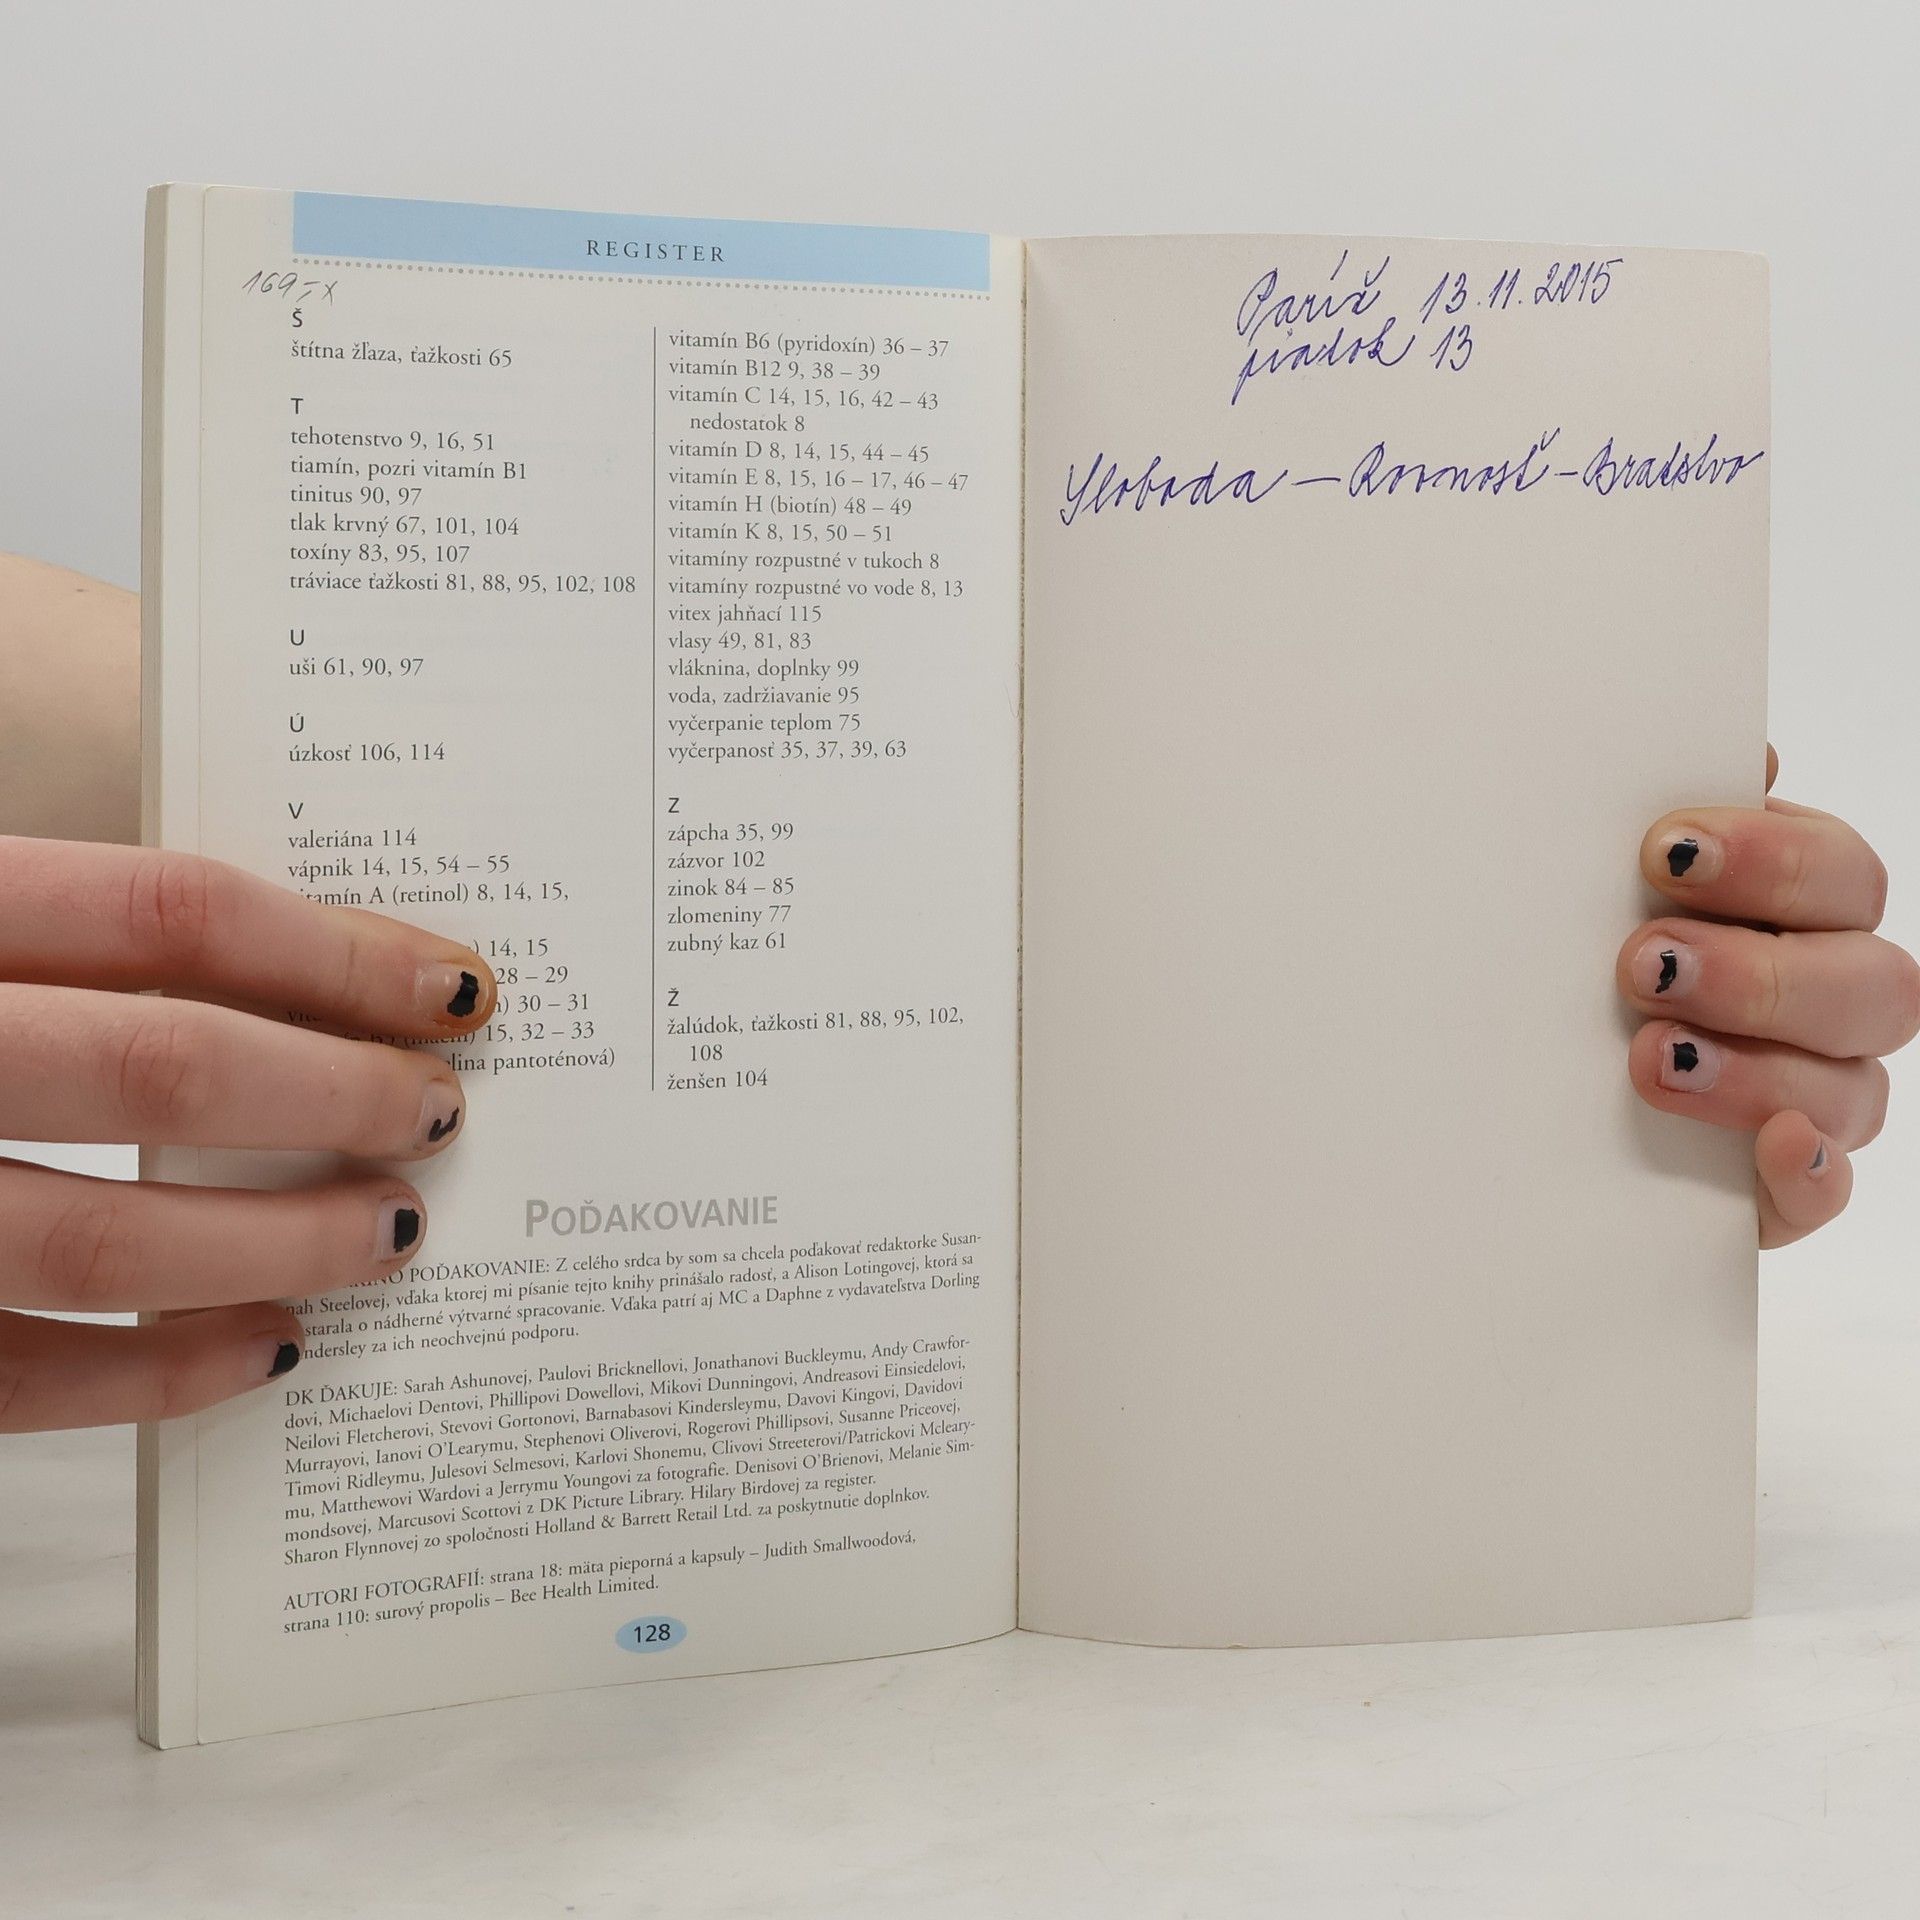 REGISTER
169,-x
Š
štítna žľaza, ťažkosti 65
T
tehotenstvo 9, 16, 51
tiamín, pozri vitamín B1
tinitus 90, 97
tlak krvný 67, 101, 104
toxíny 83, 95, 107
tráviace ťažkosti 81, 88, 95, 102, 108
U
uši 61, 90, 97
Ú
úzkosť 106, 114
V
valeriána 114
vápnik 14, 15, 54 – 55
vitamín A (retinol) 8, 14, 15,
) 14, 15
28 – 29
) 30 – 31
15, 32 – 33
pantoténová)
vitamín B6 (pyridoxín) 36 – 37
vitamín B12 9, 38 – 39
vitamín C 14, 15, 16, 42 – 43
nedostatok 8
vitamín D 8, 14, 15, 44 – 45
vitamín E 8, 15, 16 – 17, 46 – 47
vitamín H (biotín) 48 – 49
vitamín K 8, 15, 50 – 51
vitamíny rozpustné v tukoch 8
vitamíny rozpustné vo vode 8, 13
vitex jahňací 115
vlasy 49, 81, 83
vláknina, doplnky 99
voda, zadržiavanie 95
vyčerpanie teplom 75
vyčerpanosť 35, 37, 39, 63
Z
zápcha 35, 99
zázvor 102
zinok 84 – 85
zlomeniny 77
zubný kaz 61
Ž
žalúdok, ťažkosti 81, 88, 95, 102,
108
ženšen 104
POĎAKOVANIE
POĎAKOVANIE: Z celého srdca by som sa chcela poďakovať redaktorke Susan-
nah Steelovej, vďaka ktorej mi písanie tejto knihy prinášalo radosť, a Alison Lotingovej, ktorá sa
starala o nádherné výtvarné spracovanie. Vďaka patrí aj MC a Daphne z vydavateľstva Dorling
ndersley za ich neochvejnú podporu.
DK ĎAKUJE: Sarah Ashunovej, Paulovi Bricknellovi, Jonathanovi Buckleymu, Andy Crawfor-
dovi, Michaelovi Dentovi, Phillipovi Dowellovi, Mikovi Dunningovi, Andreasovi Einsiedelovi,
Neilovi Fletcherovi, Stevovi Gortonovi, Barnabasovi Kindersleymu, Davovi Kingovi, Davidovi
Murrayovi, Ianovi O'Learymu, Stephenovi Oliverovi, Rogerovi Phillipsovi, Susanne Priceovej,
Timovi Ridleymu, Julesovi Selmesovi, Karlovi Shonemu, Clivovi Streeterovi/Patrickovi Mcleary-
mu, Matthewovi Wardovi a Jerrymu Youngovi za fotografie. Denisovi O'Brienovi, Melanie Sim-
mondsovej, Marcusovi Scottovi z DK Picture Library. Hilary Birdovej za register.
Sharon Flynnovej zo spoločnosti Holland & Barrett Retail Ltd. za poskytnutie doplnkov.
AUTORI FOTOGRAFIÍ: strana 18: mäta pieporná a kapsuly – Judith Smallwoodová,
strana 110: surový propolis – Bee Health Limited.
128
Paríž 13.11.2015
piatok 13
Sloboda – Rovnosť – Bratstvo